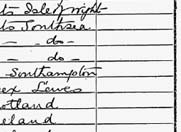 ts Isle of Wight
ts Southsea
— do —
— do —
— Southampton
ex Lewes
otland
eland